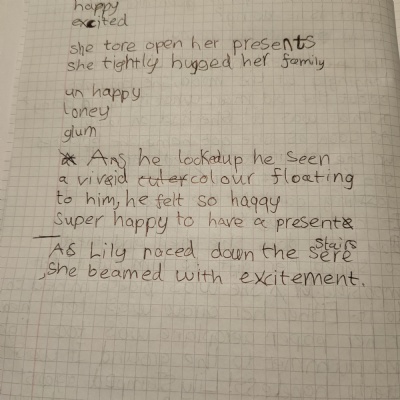 happy
excited
she tore open her presents
she tightly hugged her family
un happy
loney
glum
Ans he lockedup he seen
a viveid colour floating
to him, he felt so haqqy
super happy to have a present
As Lily raced down the stairs
,she beamed with excitement.